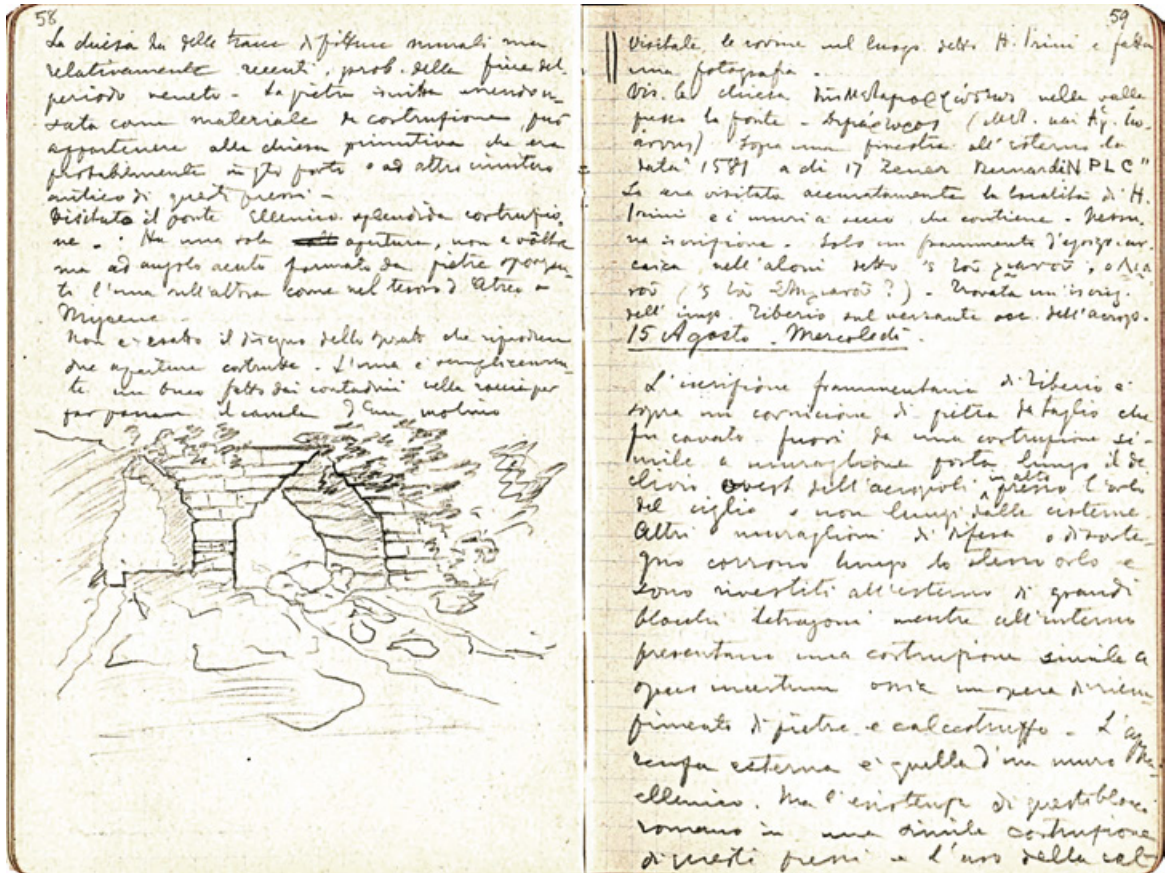 58
La chiesa ha delle tracce di pitture murali ma
relativamente recenti, prob. della fine del
periodo veneto - La pietra iscritta
sata come materiale di costruzione, può
appartenere alla chiesa primitiva che era
probabilmente in posto o ad altro
antico di questi pressi -
Visitato il ponte Ellenico splendida costruzio
ne - Ha una sola apertura, non a vôlta
ma ad angolo acuto formato da pietre sporgen
ti l'una sull'altra come nel tesoro d'Atreo a
Mycene -
Non è esatto il disegno dello Spratt che riproduce
due aperture costrutte - L'una è semplicemen
te un buco fatto dai contadini nella roccia per
far passare il canale d'un molino
59
Visitate le rovine nel luogo detto H. Irini e fatta
una fotografia -
Vis. la chiesa nella valle
presso la fonte -
Sopra una finestra all'esterno la
data "1581 a di 17 Zener BernardiN PLC"
Si era visitato accuratamente la località di H.
Irini e i muri a secco che contiene - Nessu
na iscrizione - Solo un frammento d' ar
caica nell'aloni detto
Trovata un'iscriz.
dell'imp. Tiberio sul versante occ. dell'acrop.
15 Agosto - Mercoledì.
L'iscrizione frammentaria di Tiberio è
sopra un cornicione di pietra da taglio che
fu cavato fuori da una costruzione si-
mile a muraglione posta lungo il de
clivio ovest dell'acropoli in alto presso l'orlo
del ciglio e non lungi dalle cisterne
Altri muraglioni di difesa o di soste-
gno corrono lungo lo stesso orlo e
sono rivestiti all'esterno di grandi
blocchi tetragoni mentre all'interno
presentano una costruzione simile a
opus incertum ossia un'opera di riem
pimento di pietre e calcestruzzo - L'appa
renza esterna è quella d'un muro
ellenico. Ma l'esistenza di questo blocco
romano in una simile costruzione
di questi pressi e l'uso della cal